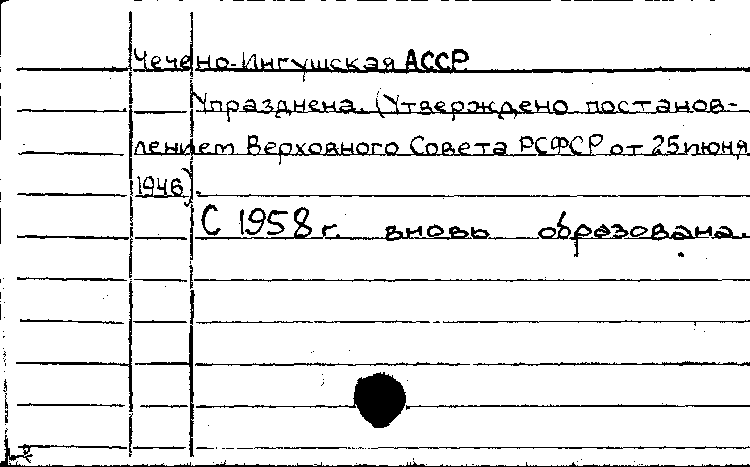 Чечено-Ингушская АССР
Упразднена. (Утверждено постанов-
лением Верховного Совета РСФСР от 25 июня
1946).
С 1958 г. вновь образована.